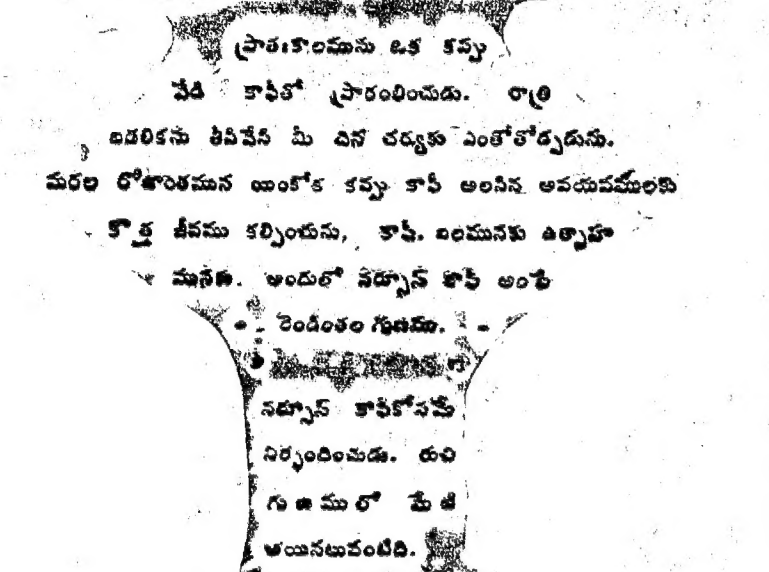 ప్రాతఃకాలమును ఒక కప్పు
వేడి కాఫీతో ప్రారంభించుడు. రాత్రి
బడలికను తీసివేసి మీ దిన చర్యకు ఎంతోతోడ్పడును.
మరల రోజాంతమున యింకోక కప్పు కాఫీ అలసిన అవయవములకు
కొత్త జీవము కల్పించును, కాఫీ. బలమునకు ఉత్సాహ
మునకు. అందులో నర్సూస్ కాఫీ అంటే
రెండింతల గుణము.
నర్సూస్ కాఫీకోసమే
నిర్భందించుడు. రుచి
గుణములో మేటి
అయినటువంటిది.